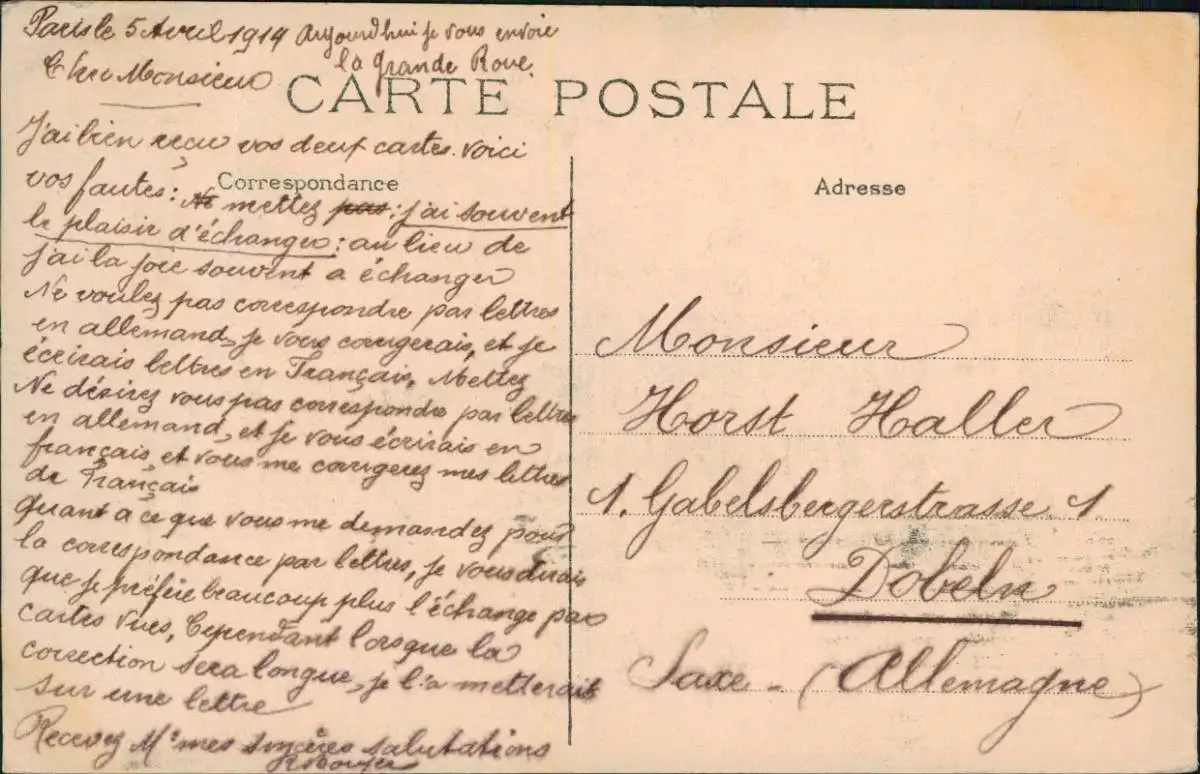 Paris le 5 Avril 1914 Aujourd'hui je vous envoie
la Grande Roue.
Cher Monsieur
CARTE POSTALE
J'ai bien reçu vos deux cartes. voici
Correspondance
vos fautes: Ne mettez pas: j'ai souvent
le plaisir d'échanger: au lieu de
j'ai la joie souvent a échanger
Ne voulez pas correspondre par lettres
en allemand, je vous corrigerais, et je
écrirais lettres en Français, Mettez
Ne désirez vous pas correspondre par lettres
en allemand, et je vous écrirais en
français et vous me corrigerez mes lettres
de Français
quant a ce que vous me demandez pour
la correspondance par lettres, je vous dirais
que je préfère beaucoup plus l'échange par
cartes vues, Cependant lorsque la
correction sera longue, je l'a metterais
sur une lettre
Recevez Mr mes sincères salutations
Adresse
Monsieur
Horst Haller
1. Gabelsbergerstrasse. 1
Dobeln
Saxe - (Allemagne)